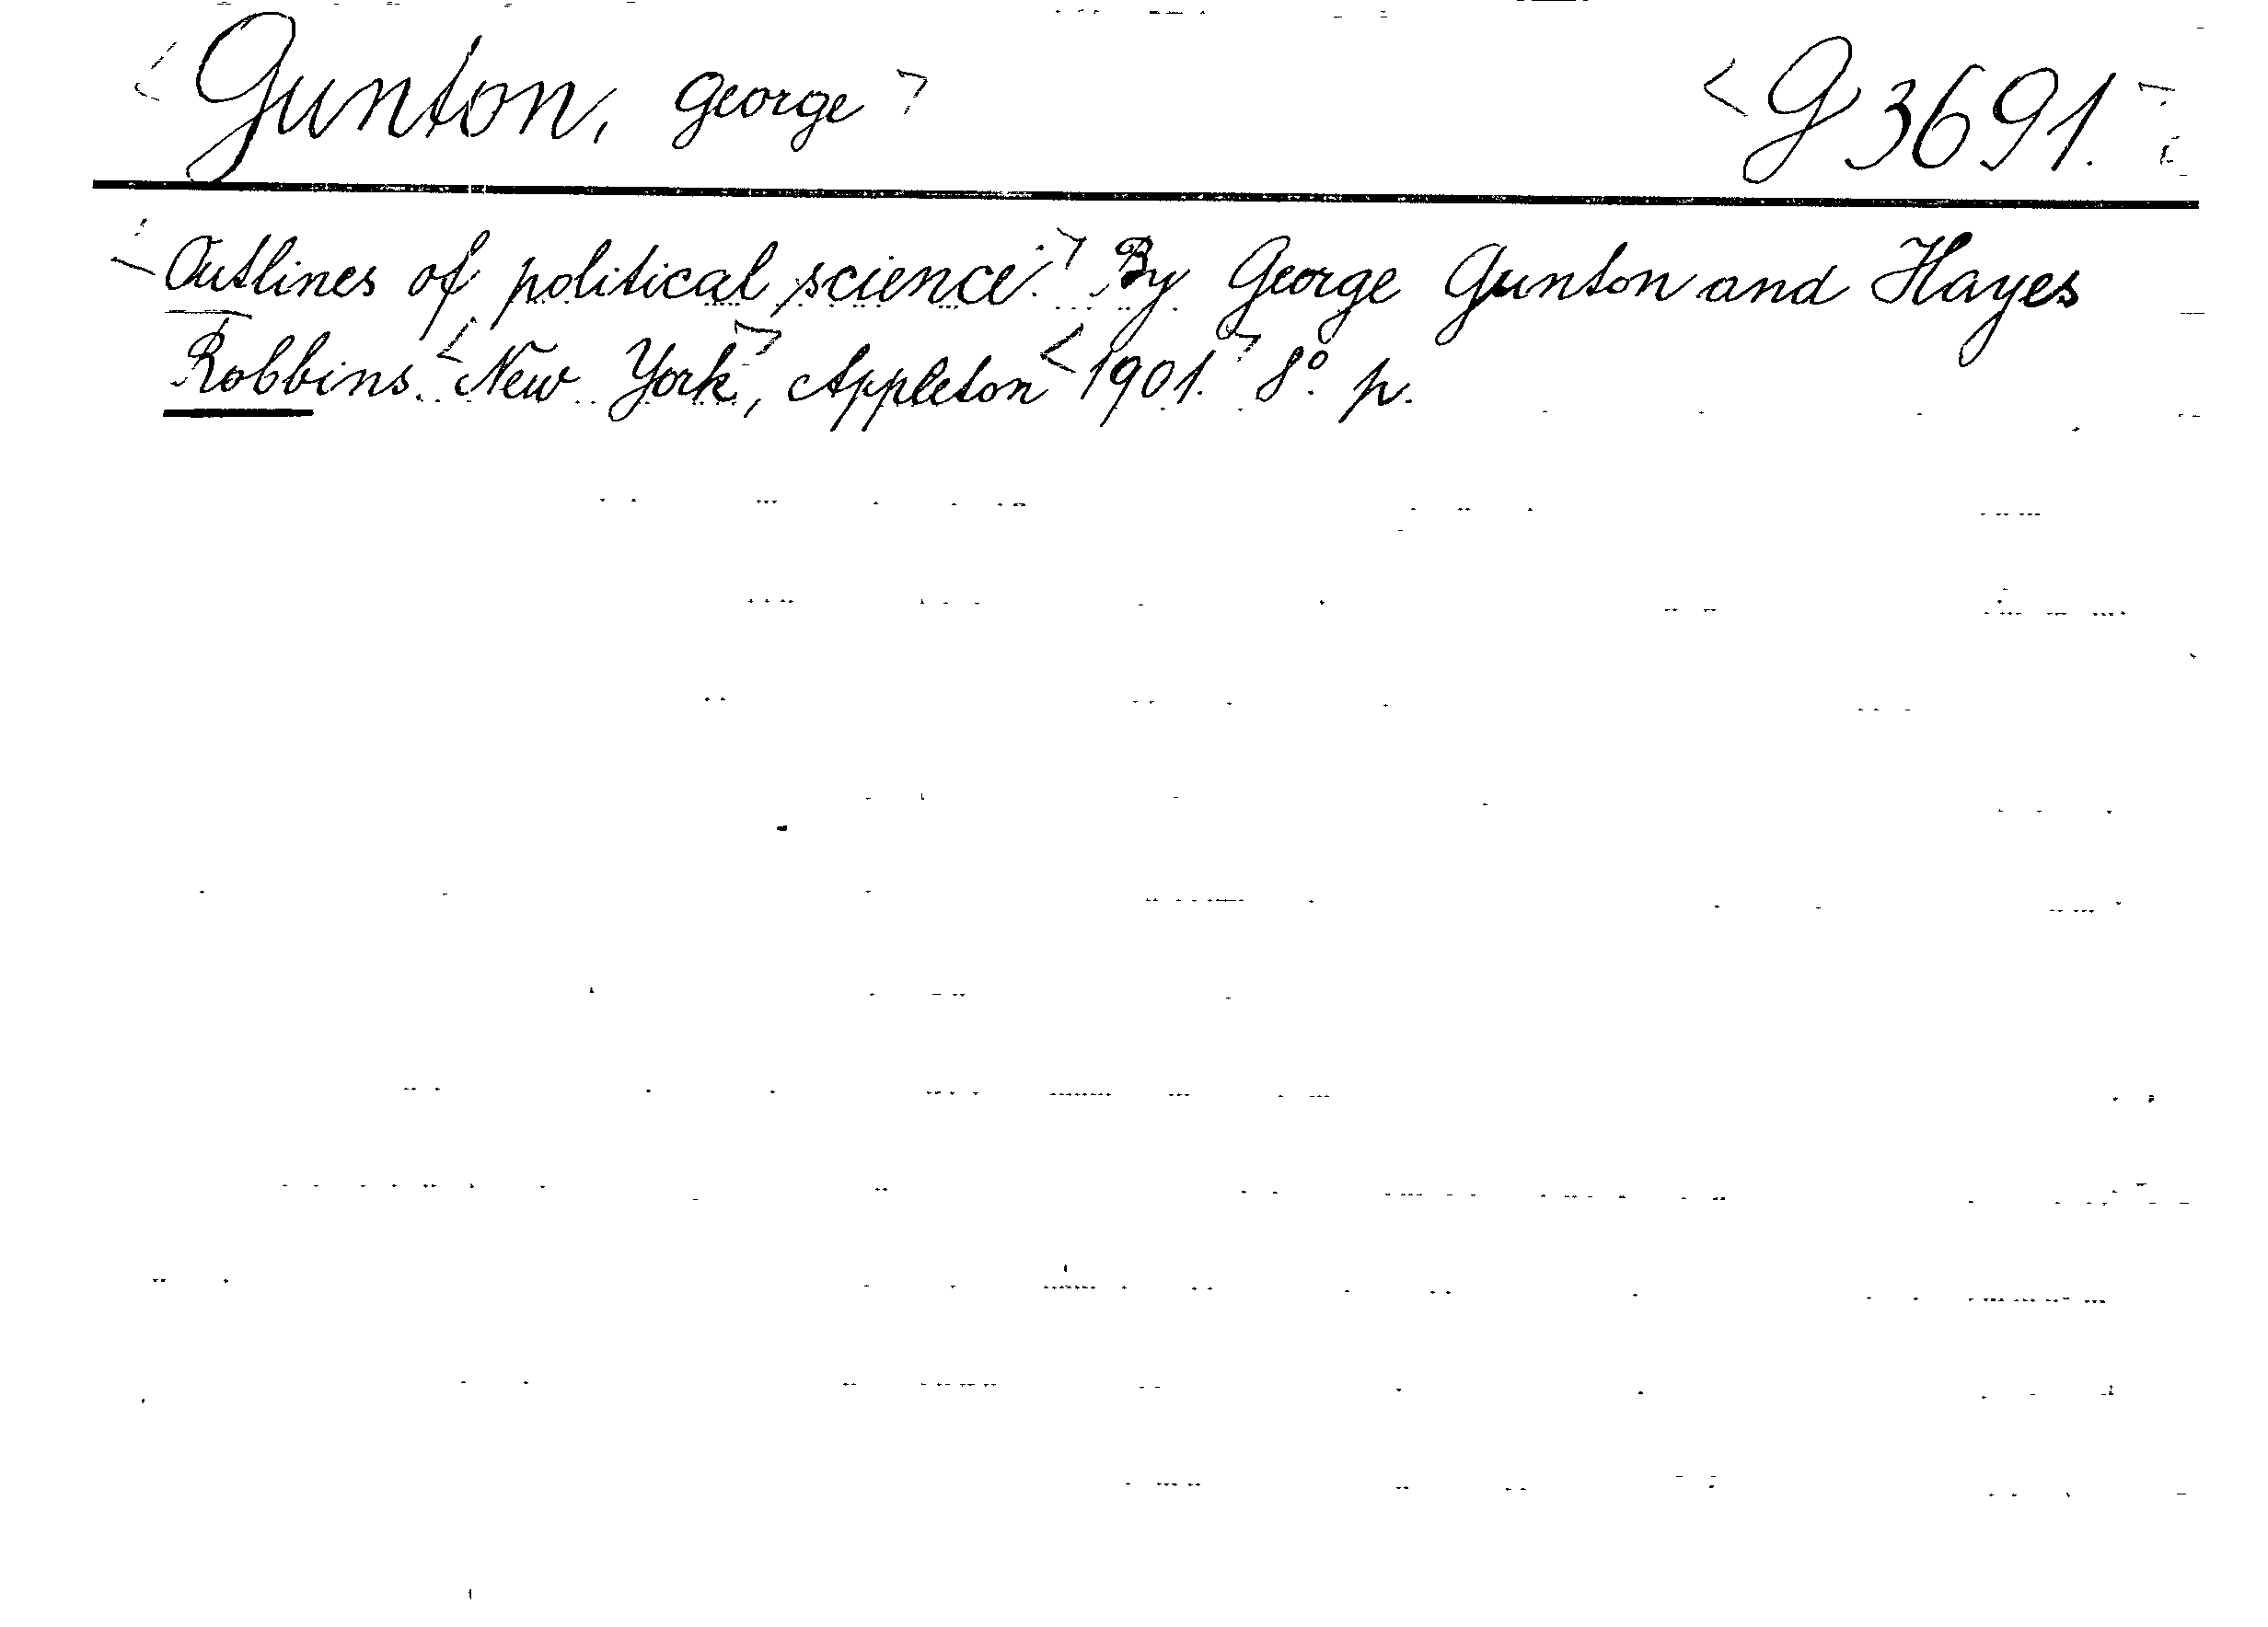 <Gunton, George> <G 3691.>
<Outlines of political science.> By George Gunton and Hayes
Robbins. <New York>, Appleton <1901.> 8° p.